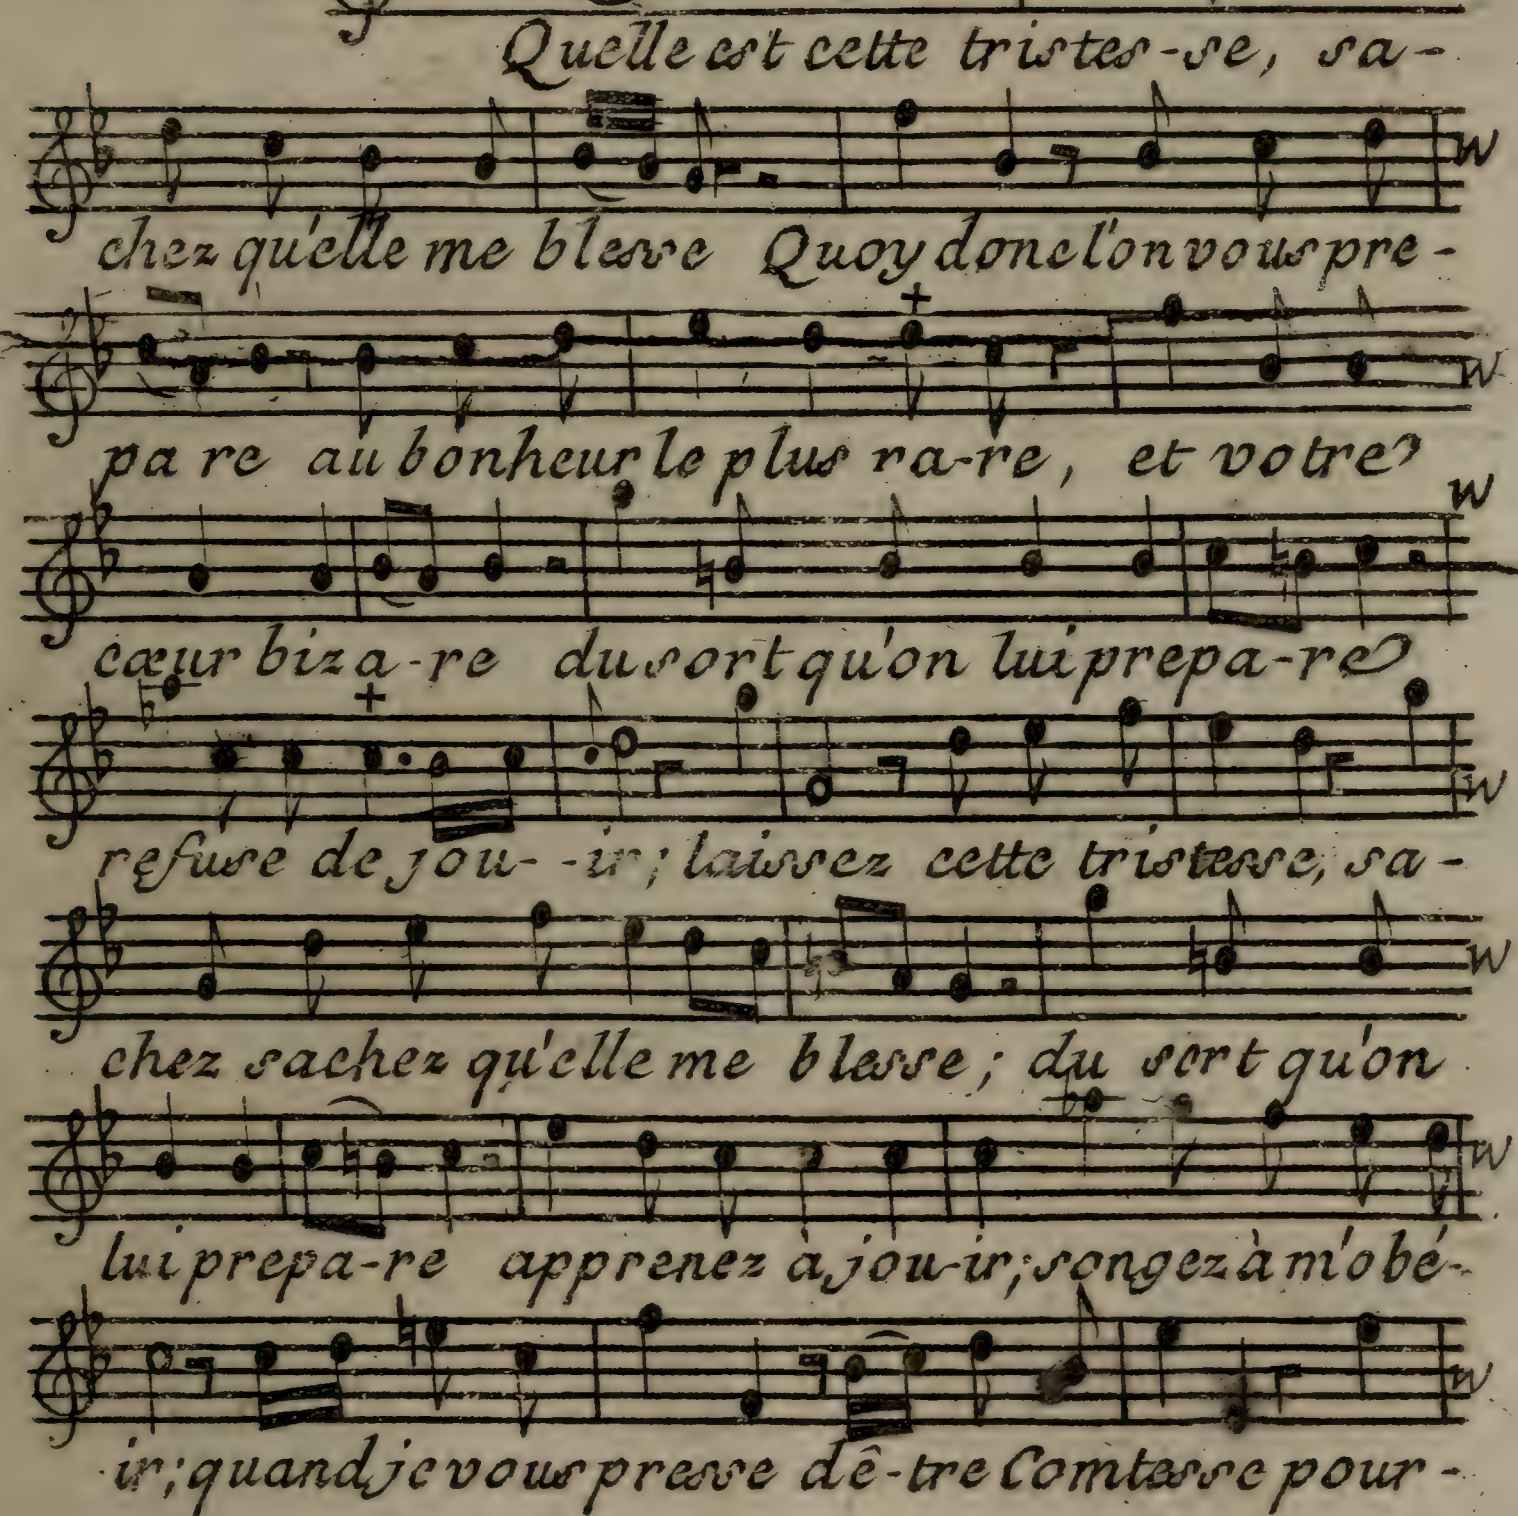 Quelle est cette tristes-se, sa-
chez qu'elle me blesse Quoy donc l'on vous pre-
pa re au bonheur le plus ra-re, et votre
cœur biza-re du sort qu'on lui prepa-re
refuse de jou--ir; laissez cette tristesse, sa-
chez sachez qu'elle me blesse; du sort qu'on
lui prepa-re apprenez à jou-ir; songez à m'obé-
ir; quand je vous presse dê-tre Comtesse pour-